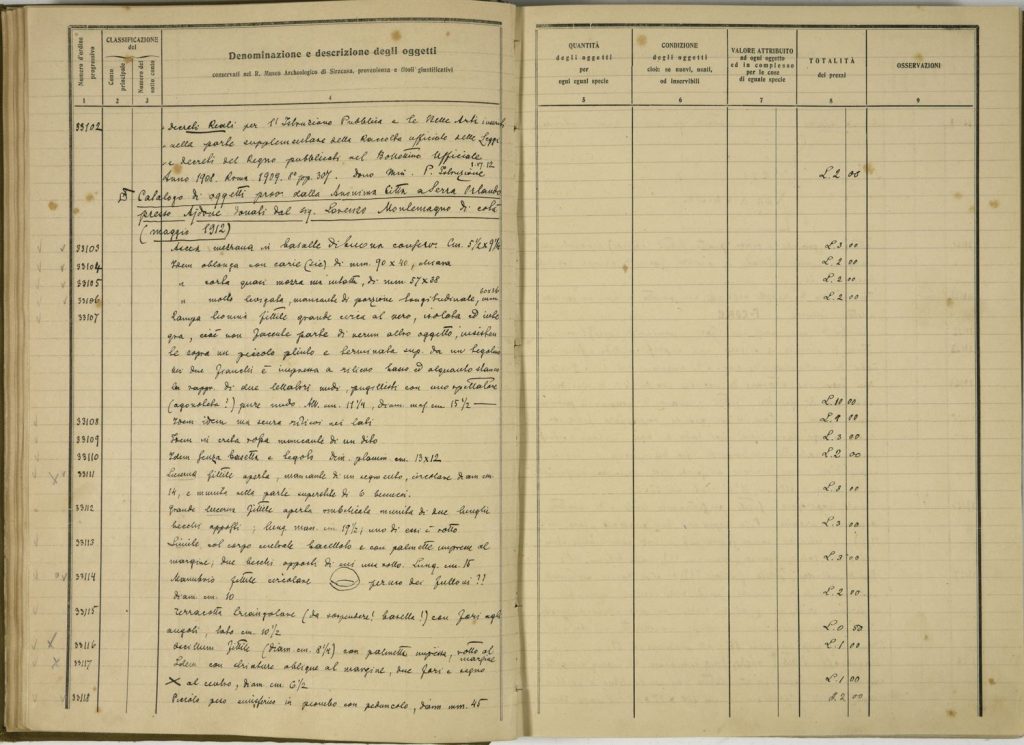 Numero d'ordine progressivo
CLASSIFICAZIONE del
Conto principale
Numero del sotto conto
Denominazione e descrizione degli oggetti
conservati nel R. Museo Archeologico di Siracusa, provenienza e titoli giustificativi
QUANTITÀ degli oggetti per ogni eguali specie
CONDIZIONE degli oggetti cioè: se nuovi, usati, od inservibili
VALORE ATTRIBUITO ad ogni oggetto ed in complesso per le cose di eguale specie
TOTALITÀ dei prezzi
OSSERVAZIONI
1 2 3 4 5 6 7 8 9
33102 Decreti Reali per l'Istruzione Pubblica e le Belle Arti inseriti
nella parte supplementare della Raccolta ufficiale delle Leggi
e decreti del Regno pubblicati nel Bollettino Ufficiale
Anno 1908. Roma 1909. 8° pp. 307. dono Min. P. Istruzione L. 2 00
Catalogo di oggetti prov. dalla Anonima Città a Serra Orlando
presso Ajdone donati dal sig. Lorenzo Montemagno di colà
(maggio 1912)
33103 Accia mezzana in basalte di buona conserv. Cm. 5½ x 9½ L. 3 00
33104 Idem oblonga con carie (sic) di mm. 90 x 40, L. 2 00
33105 " corta quasi mozza ma intatta, di mm. 57 x 38 L. 2 00
33106 " molto levigata, mancante di porzione longitudinale, mm L. 2 00
33107 Lampa fittile grande circa al vero, isolata ed inte
gra, cioè non facente parte di verun altro oggetto, insisten
te sopra un piccolo plinto e terminata sup. da un
Nei due fianchi è impressa a rilievo basso ed alquanto stanco
la rapp. di due lottatori nudi, pugillisti con uno spettatore
(agonoteta?) pure nudo. Alt. cm. 17¼, diam. mass. cm. 15½ L. 10 00
33108 Idem idem ma senza rilievi nei lati L. 4 00
33109 Idem in creta rossa mancante di un dito L. 3 00
33110 Idem senza basetta e dim. cm. 13 x 12 L. 2 00
33111 Lucerna fittile aperta, mancante di un segmento, circolare diam. cm.
14, e munita nella parte superstite di 6 beccucci. L. 3 00
33112 Grande lucerna fittile aperta munita di due lunghi
becchi opposti; lung. mass. cm. 19½; uno di essi è rotto L. 3 00
33113 Simile, col corpo baccellato e con palmette impresse al
margine; due becchi opposti di cui uno rotto. Lung. cm. 16 L. 3 00
33114 Manubrio fittile circolare
diam. cm. 10 L. 2 00
33115 Terracotta triangolare (da sospendere! ) con fori agli
angoli, lato cm. 10½ L. 0 50
33116 Oscillum fittile (diam. cm. 8¼) con palmetta impressa, rotto al margine L. 1 00
33117 Idem con striature oblique al margine, due fori e segno
X al centro, diam. cm. 6½ L. 1 00
33118 Piccolo peso emisferico in piombo con peduncolo, diam. mm. 45 L. 2 00